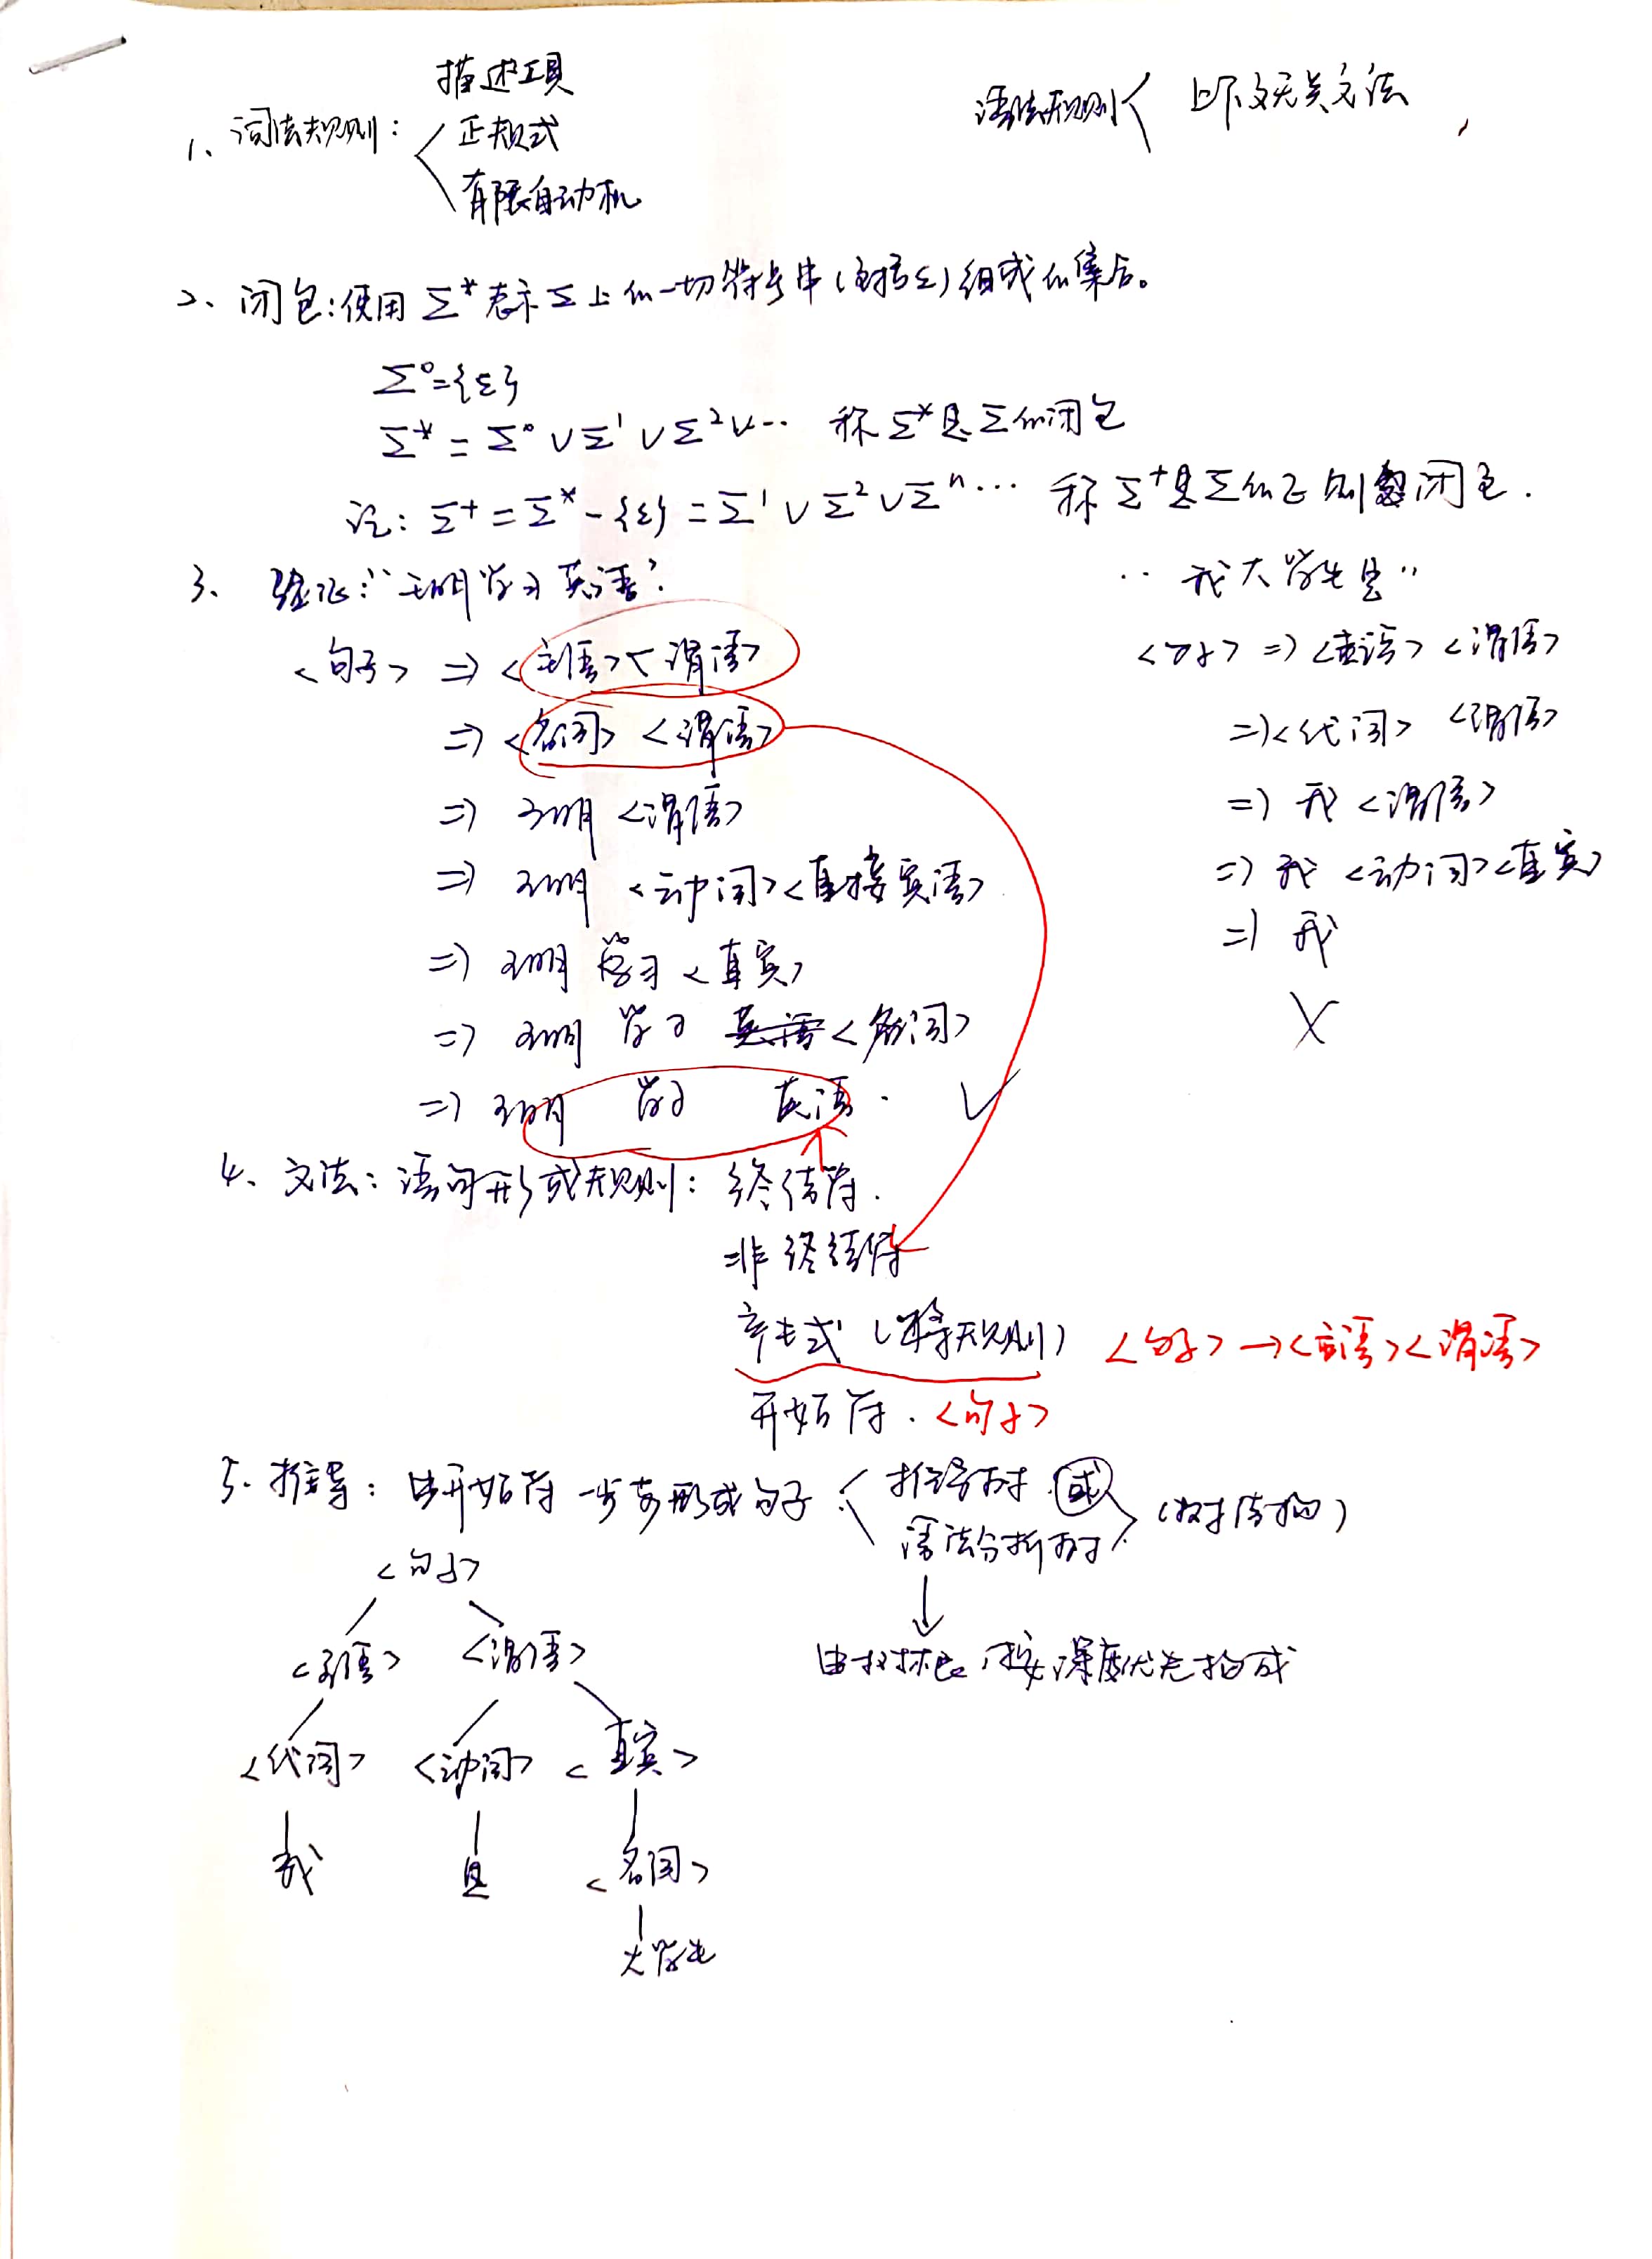 描述工具
1、词法规则：正规式
有限自动机
语法规则 上下文无关文法
2、闭包：使用Σ*表示Σ上的一切符号串（包括ε）组成的集合。
Σ⁰={ε}
Σ* = Σ⁰∨Σ¹∨Σ²∨… 称Σ*是Σ的闭包
记：Σ⁺=Σ*-{ε}=Σ¹∨Σ²∨Σⁿ… 称Σ⁺是Σ的正则闭包.
3、验证："王明学习英语".
<句子> ⇒ <主语><谓语>
⇒ <名词> <谓语>
⇒ 王明 <谓语>
⇒ 王明 <动词><直接宾语>
⇒ 王明 学习 <直宾>
⇒ 王明 学习 英语 <名词>
⇒ 王明 学习 英语. ✓
"我大学生是"
<句子> ⇒ <主语> <谓语>
⇒ <代词> <谓语>
⇒ 我 <谓语>
⇒ 我 <动词><直宾>
⇒ 我
X
4、文法：语句形成规则：终结符.
非终结符
产生式（规则） <句子> → <主语><谓语>
开始符. <句子>
5. 推导：由开始符一步步形成句子：推导树 或
语法分析树 (树结构)
↓
由树根，按深度优先构成
<句子>
<主语> <谓语>
<代词> <动词> <直宾>
我 是 <名词>
大学生